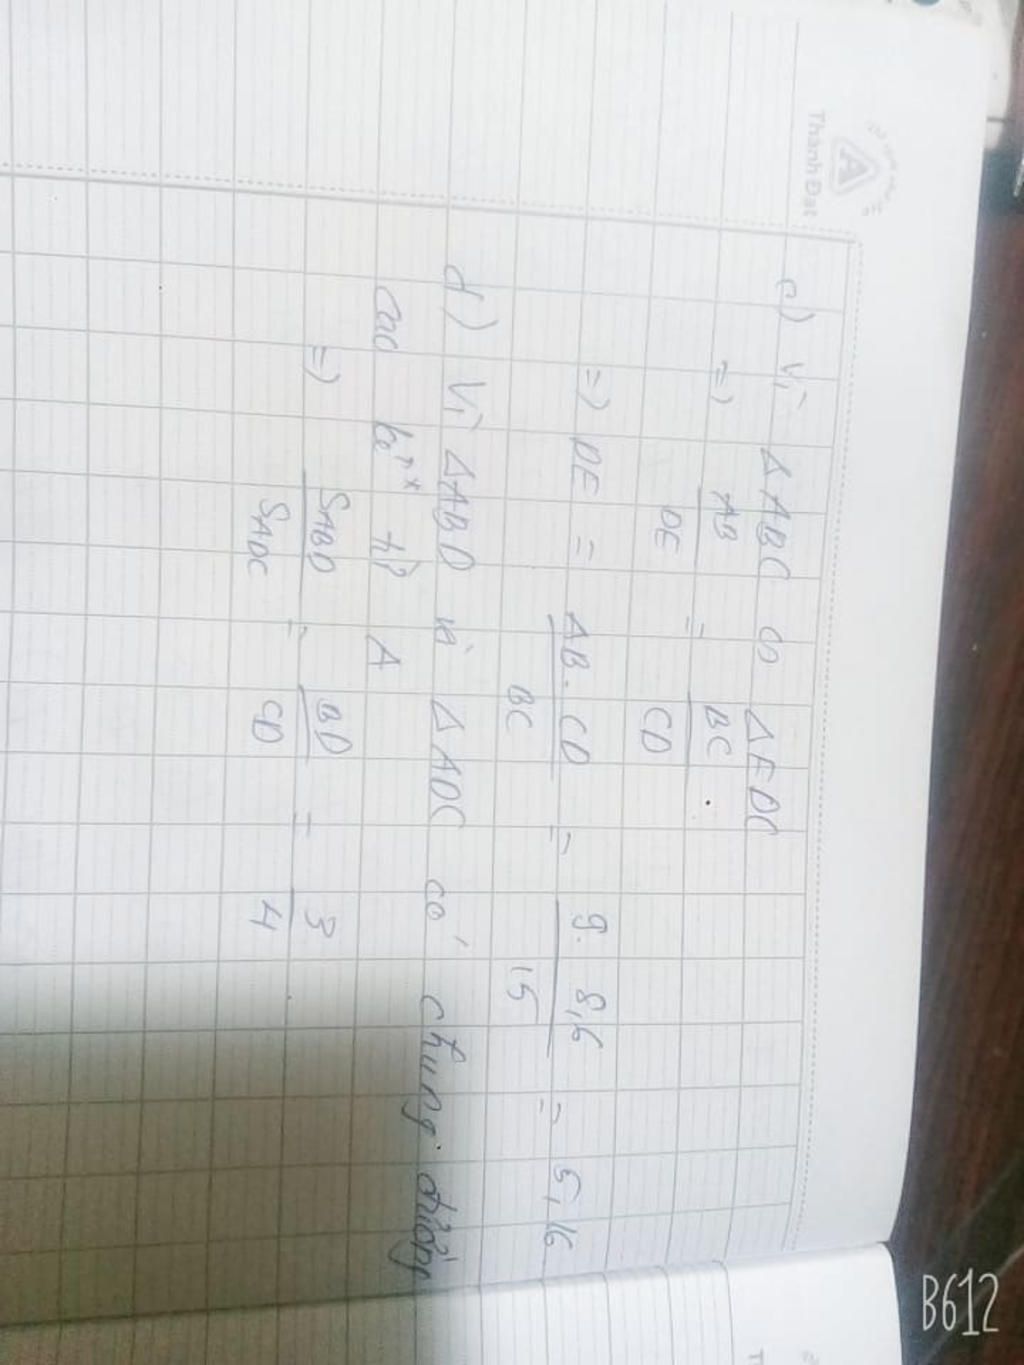 Thành Đạt
c) Vì ΔABC ∽ ΔEDC
=> AB/DE = BC/CD
=> DE = AB.CD/BC = 9.8,6/15 = 5,16
d) Vì ΔABD và ΔADC có chung đường
cao kẻ từ A
=> SABD/SADC = BD/CD = 3/4
B612